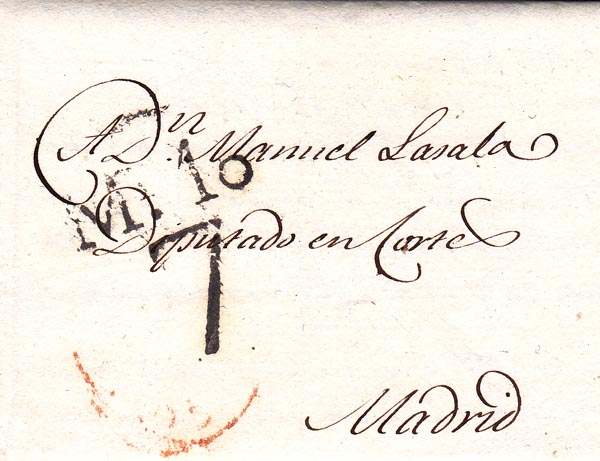 A Dn. Manuel Lasala
M. 10
Diputado en Cortes
7
Madrid